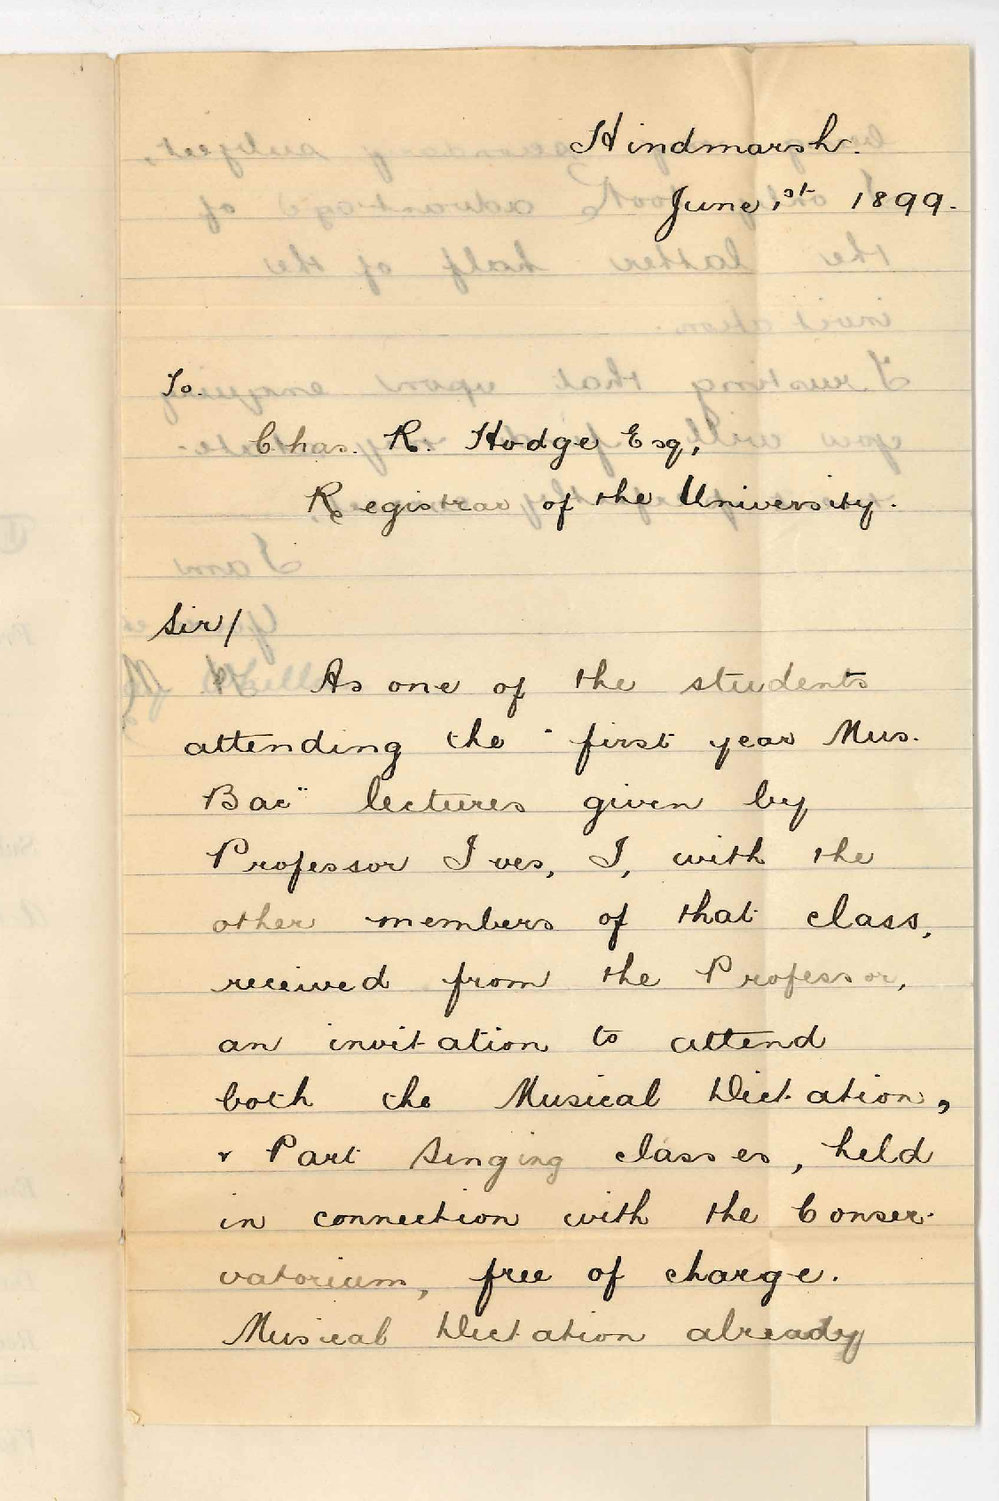 Hindmarsh.
June 1st 1899.
To
Chas. R. Hodge Esq,
Registrar of the University.
Sir/
As one of the students
attending the "first year Mus.
Bac" lectures given by
Professor Ives, I, with the
other members of that class,
received from the Professor,
an invitation to attend
both the Musical Dictation,
& Part Singing classes, held
in connection with the Conser-
vatorium, free of charge.
Musical Dictation already